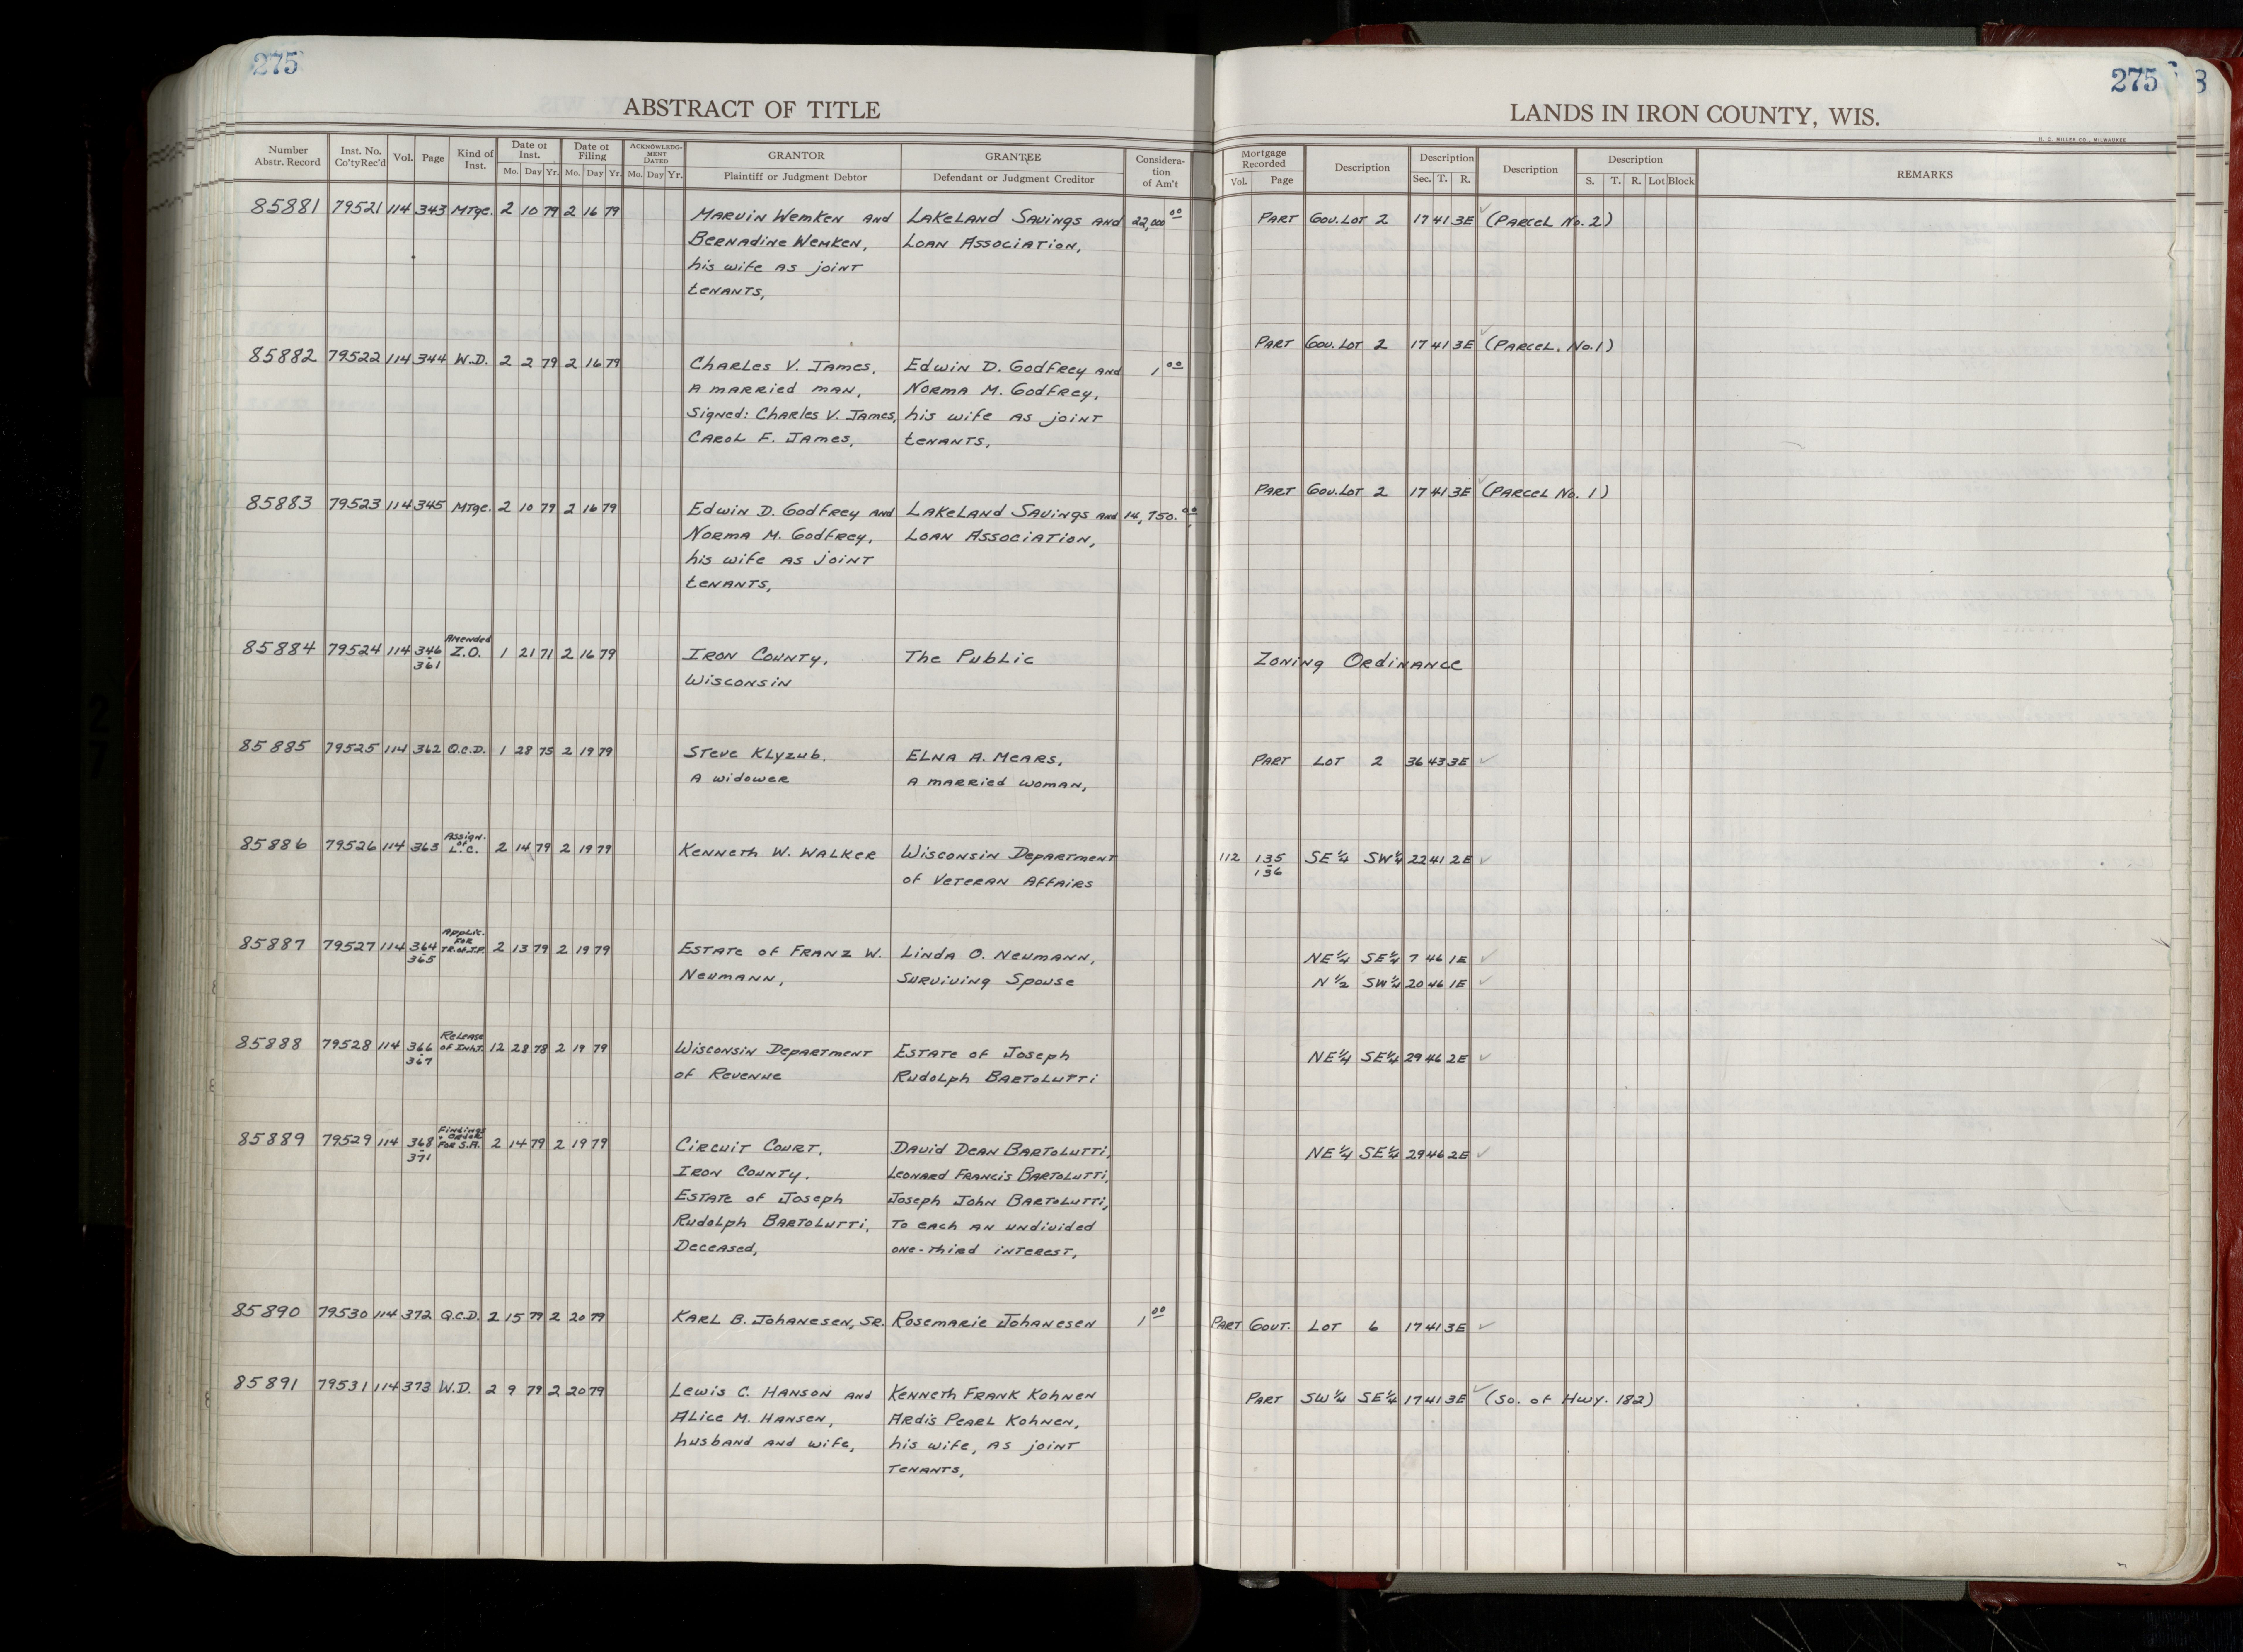 275
ABSTRACT OF TITLE
Number Abstr. Record Inst. No. Co'ty Rec'd Vol. Page Kind of Inst. Date of Inst. Mo. Day Yr. Date of Filing Mo. Day Yr. ACKNOWLEDGMENT DATED Mo. Day Yr. GRANTOR Plaintiff or Judgment Debtor GRANTEE Defendant or Judgment Creditor Consideration of Am't
85881 79521 114 343 MTge. 2 10 79 2 16 79 MARVIN WEMKEN AND LAKELAND SAVINGS AND 22,000 00
BERNADINE WEMKEN, LOAN ASSOCIATION,
his wife AS joiNT
tENANTS,
85882 79522 114 344 W.D. 2 2 79 2 16 79 CHARLES V. JAMES, Edwin D. GodfRey AND 1 00
A MARRIED MAN, NORMA M. GodfRey,
Signed: CHARLES V. JAMES, his wife AS joiNT
CAROL F. JAMES, tENANTS,
85883 79523 114 345 MTge. 2 10 79 2 16 79 Edwin D. GodfRey AND LAKELAND SAVINGS AND 14,750. 00
NORMA M. GodfRey, LOAN ASSOCIATION,
his wife AS joiNT
tENANTS,
85884 79524 114 346 - 361 Amended Z.O. 1 21 71 2 16 79 IRON COUNTY, The Public
WISCONSIN
85885 79525 114 362 Q.C.D. 1 28 75 2 19 79 Steve Klyzub, ELNA A. MEARS,
A widower A MARRIED WOMAN,
85886 79526 114 363 Assign. of L.C. 2 14 79 2 19 79 KENNETH W. WALKER WISCONSIN DEPARTMENT
of VETERAN AFFAIRS
85887 79527 114 364 - 365 Applic. FOR TR. of J.P. 2 13 79 2 19 79 ESTATE of FRANZ W. LINDA O. NEUMANN,
NEUMANN, SURVIVING SPOUSE
85888 79528 114 366 - 367 Release of Inht. 12 28 78 2 19 79 WISCONSIN DEPARTMENT ESTATE of JOSEPH
of REVENUE RUDOLPH BARTOLUTTI
85889 79529 114 368 - 371 Findings & ORDER FOR S.A. 2 14 79 2 19 79 CIRCUIT COURT, DAVID DEAN BARTOLUTTI,
IRON COUNTY. LEONARD FRANCIS BARTOLUTTI,
ESTATE of JOSEPH JOSEPH JOHN BARTOLUTTI,
RUDOLPH BARTOLUTTI, TO EACH AN UNDIVIDED
DECEASED, ONE-THIRD INTEREST,
85890 79530 114 372 Q.C.D. 2 15 79 2 20 79 KARL B. JOHANESEN, SR. ROSEMARIE JOHANESEN 1 00
85891 79531 114 373 W.D. 2 9 79 2 20 79 LEWIS C. HANSON AND KENNETH FRANK KOHNEN
ALICE M. HANSEN, ARDIS PEARL KOHNEN,
husbAND AND wife, his wife, AS joiNT
TENANTS,
275
LANDS IN IRON COUNTY, WIS.
H. C. MILLER CO., MILWAUKEE
Mortgage Recorded Vol. Page Description Description Sec. T. R. Description Description S. T. R. Lot Block REMARKS
PART GOV. LOT 2 17 41 3E ✓ (PARCEL No. 2)
PART GOV. LOT 2 17 41 3E ✓ (PARCEL. No. 1)
PART GOV. LOT 2 17 41 3E ✓ (PARCEL No. 1)
ZONING ORDINANCE
PART LOT 2 36 43 3E ✓
112 135 - 136 SE¼ SW¼ 22 41 2E ✓
NE¼ SE¼ 7 46 1E ✓
N½ SW¼ 20 46 1E ✓
NE¼ SE¼ 29 46 2E ✓
NE¼ SE¼ 29 46 2E ✓
PART GOVT. LOT 6 17 41 3E ✓
PART SW¼ SE¼ 17 41 3E ✓ (So. of Hwy. 182)